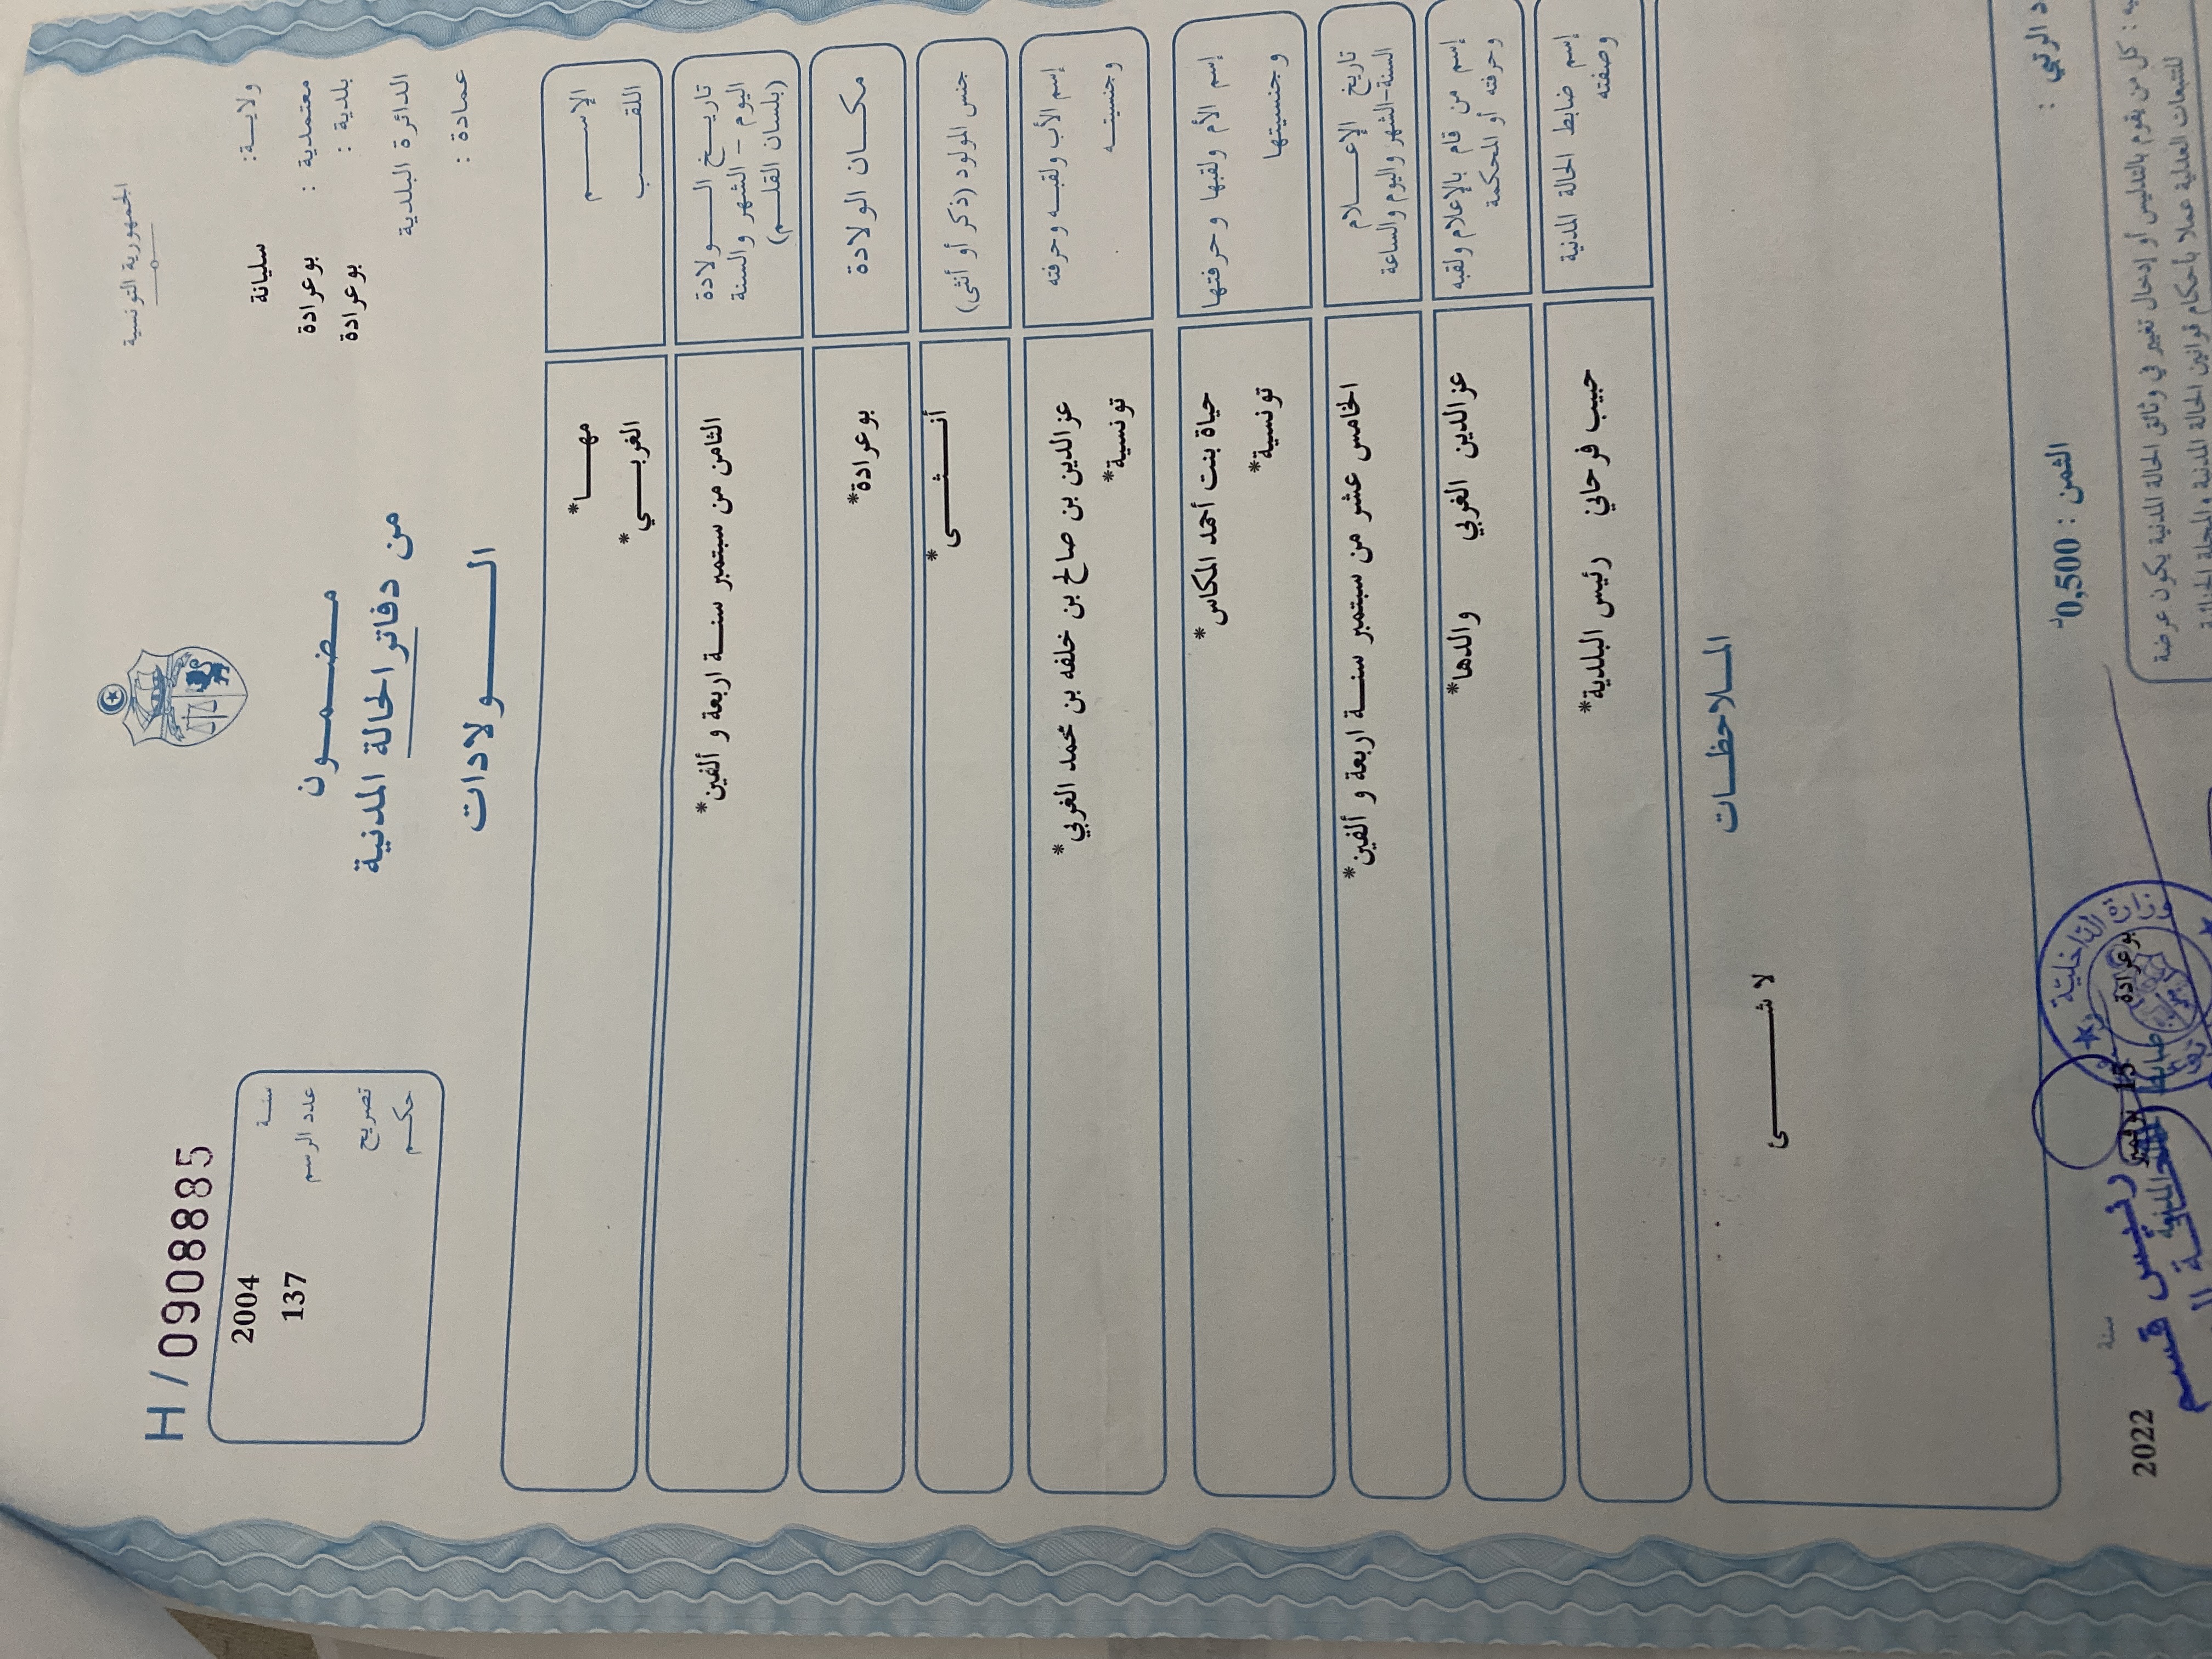 الجمهورية التونسية
H/0908885
ولاية: سليانة
معتمدية : بوعرادة
بلدية : بوعرادة
الدائرة البلدية
عمادة :
سنة 2004
عدد الرسم 137
تصريح
حكم
مضمون
من دفاتر الحالة المدنية
الولادات
الإسم مها*
اللقب الغربي*
تاريخ الولادة
اليوم - الشهر والسنة
(بلسان القلم)
الثامن من سبتمبر سنة اربعة و ألفين*
مكان الولادة بوعرادة*
جنس المولود (ذكر أو أنثى) أنثى*
إسم الأب ولقبه وحرفته عزالدين بن صالح بن خلفه بن محمد الغربي*
وجنسيته تونسية*
إسم الأم ولقبها وحرفتها حياة بنت أحمد المكاس*
وجنسيتها تونسية*
تاريخ الإعلام
السنة-الشهر واليوم والساعة
الخامس عشر من سبتمبر سنة اربعة و ألفين*
إسم من قام بالإعلام ولقبه
وحرفته أو المحكمة
عزالدين الغربي والدها*
إسم ضابط الحالة المدنية
وصفته
حبيب فرحاني رئيس البلدية*
الملاحظات
لا شىء
د الرتبي :
الثمن : 0,500د
بوعرادة 15 نوفمبر سنة 2022
وزارة الداخلية
ضابط الحالة المدنية
رئيس قسم
يه : كل من يقوم بالتدليس أو إدخال تغيير في وثائق الحالة المدنية يكون عرضة
للتتبعات العدلية عملا بأحكام قوانين الحالة المدنية والمجلة الجنائية